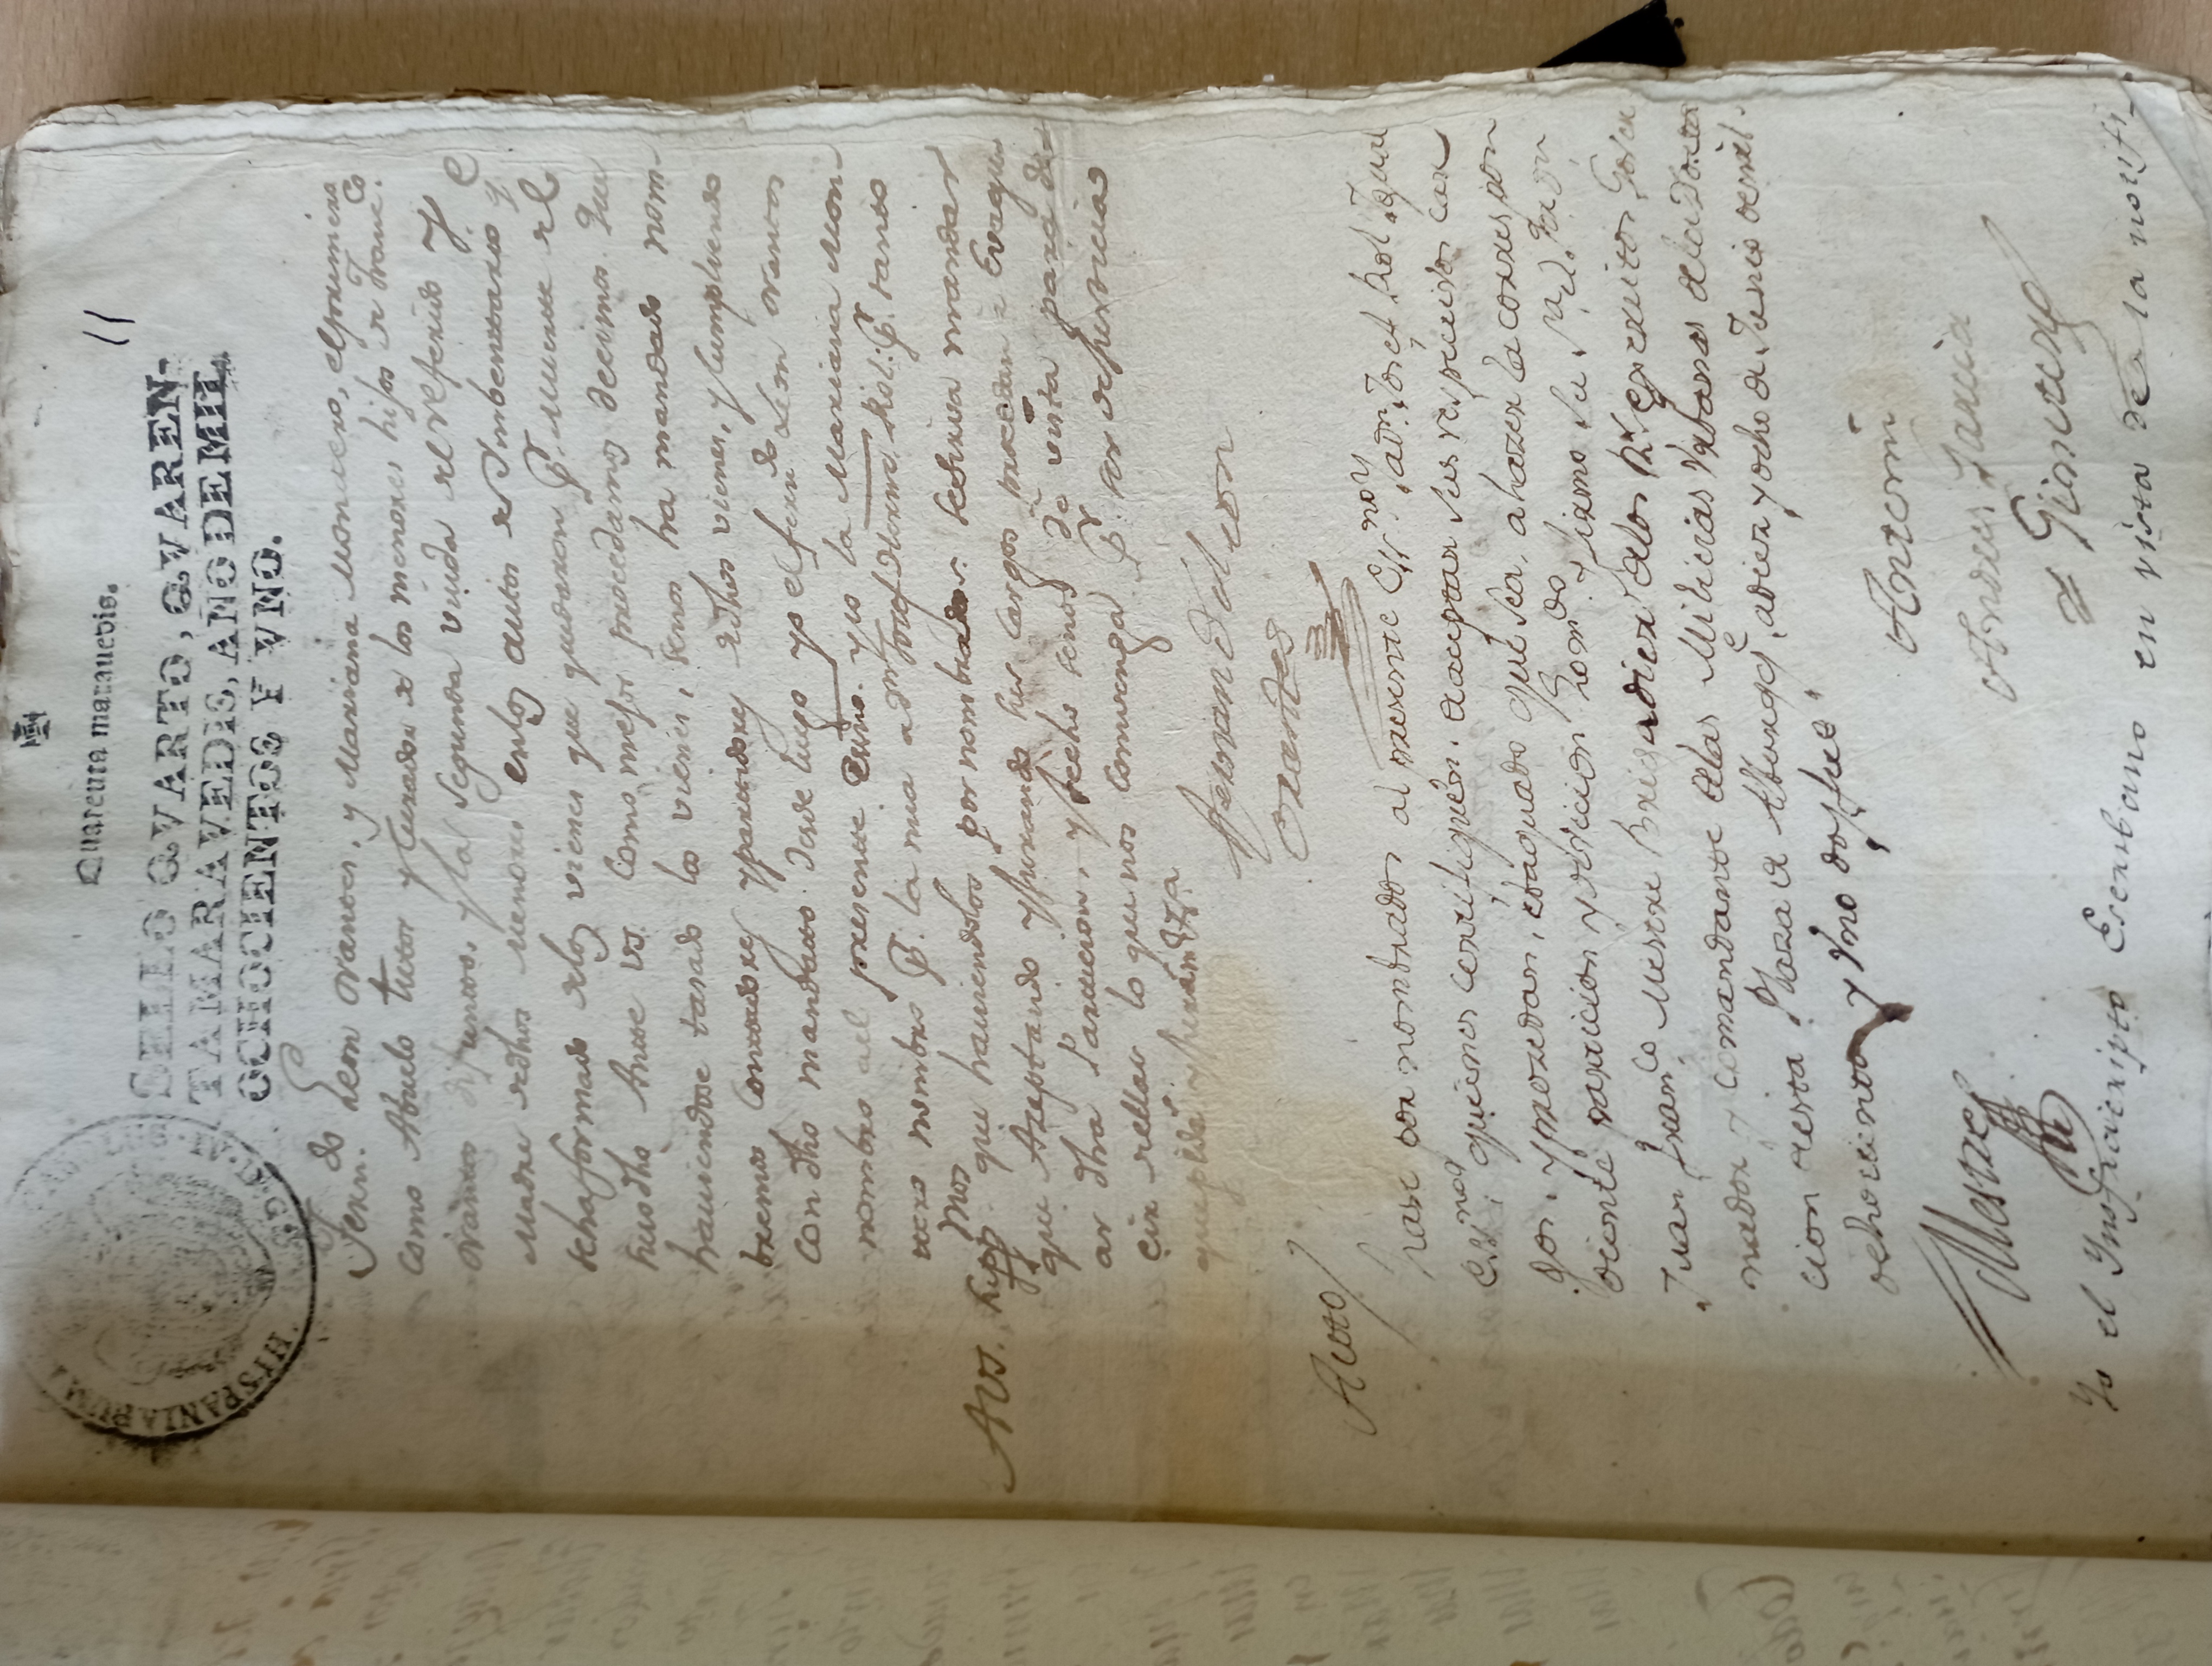 Quarenta marauedis.
11
SELLO QVARTO, QVAREN-
TA MARAVEDIS, AÑO DE MIL
OCHOCIENTOS Y VNO.
HISPANIARUM
Fern.do Leon Orantes, y Mariana Montero, el primero
como Abuelo tutor y Curador de los menores hijos de Franc.co
Orantes difunto, y la segunda viuda del referido y
Madre de dhos menores en los autos de Ymbenttario q.e
se ha formado de los vienes que quedaron p.r muerte del
suso dho Ante VS. como mejor procedamos decimos que
haviendose tasado los vienes, se nos ha mandado nom-
bremos Contadores y partidores de dhos vienes, y Cumpliendo
con dho mandatto desde luego yo el fern.do Leon Orantes
nombro al presente Essno. y yo la Mariana Mon-
tero nombro p.r la mia a dn Josef Rol: p.r tanto
A VS. supp.mos que haviendolos por nombrados se sirva mandar
que Azeptando y jurando sus cargos procedan a Evaqu-
ar dha Particion, y fecho se nos dé vista para de-
cir de ella lo que nos convenga p.r ser de Justicia
que pido y juram.
Fernan d leon
orantes
Auto
hase por nombrados al presente Ess.no y a dn. Josef Rol Igual
Ess.no quienes certifiquen aceptar sus respectivos car
gos, y prozedan, ebaquado que sea, a hazer la correspon
diente particion y divicion Lo m.do y firmo Su S.a el S.or Dn
Juan Fran.co Mestre Brigadier de los R.s exercitos Gover
nador y comandante de las Milicias Urbanas de la
cion de esta Plaza de Alburqq.e, a diez y ocho de Junio de mil
ochocientos y Uno doy fee
Mestre
Antemi
Andres Garcia
de Gimenez
Yo el Ynfraescripto Escribano en vista de la notifi-